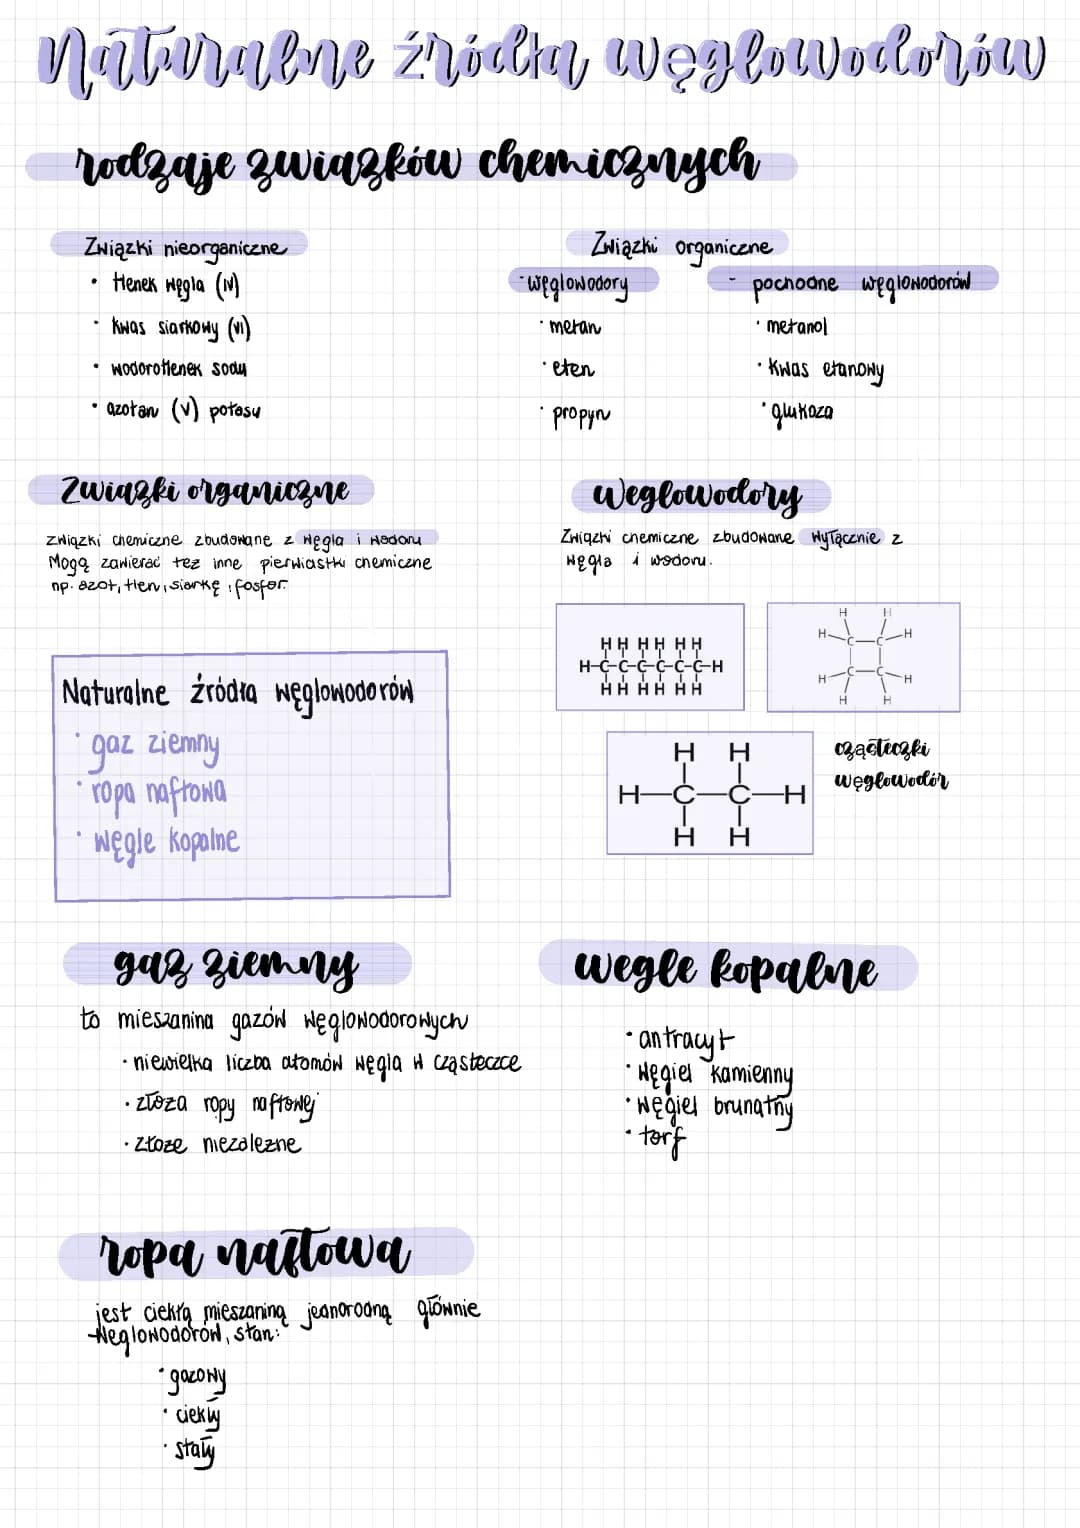 Naturalne źródła węglowodorów
rodzaje związków chemicznych
Związki nieorganiczne
• tlenek węgla (IV)
• kwas siarkowy (VI)
• wodorotlenek sodu
• azotan (V) potasu
Związki organiczne
- węglowodory
• metan
• eten
• propyn
- pochodne węglowodorów
• metanol
• kwas etanowy
• glukoza
Związki organiczne
związki chemiczne zbudowane z węgla i wodoru
Mogą zawierać też inne pierwiastki chemiczne
np. azot, tlen, siarkę, fosfor.
Węglowodory
Związki chemiczne zbudowane wyłącznie z
węgla i wodoru.
H H H H H H
H-C-C-C-C-C-C-H
H H H H H H
H H
H C C H
H C C H
H H
H H
H-C-C-H
H H
cząsteczki
węglowodór
Naturalne źródła węglowodorów
• gaz ziemny
• ropa naftowa
• węgle kopalne
gaz ziemny
to mieszanina gazów węglowodorowych
• niewielka liczba atomów węgla w cząsteczce
• złoża ropy naftowej
• złoże niezależne
węgle kopalne
• antracyt
• węgiel kamienny
• węgiel brunatny
• torf
ropa naftowa
jest ciekłą mieszaniną jednorodną głównie
węglowodorów, stan:
• gazowy
• ciekły
• stały